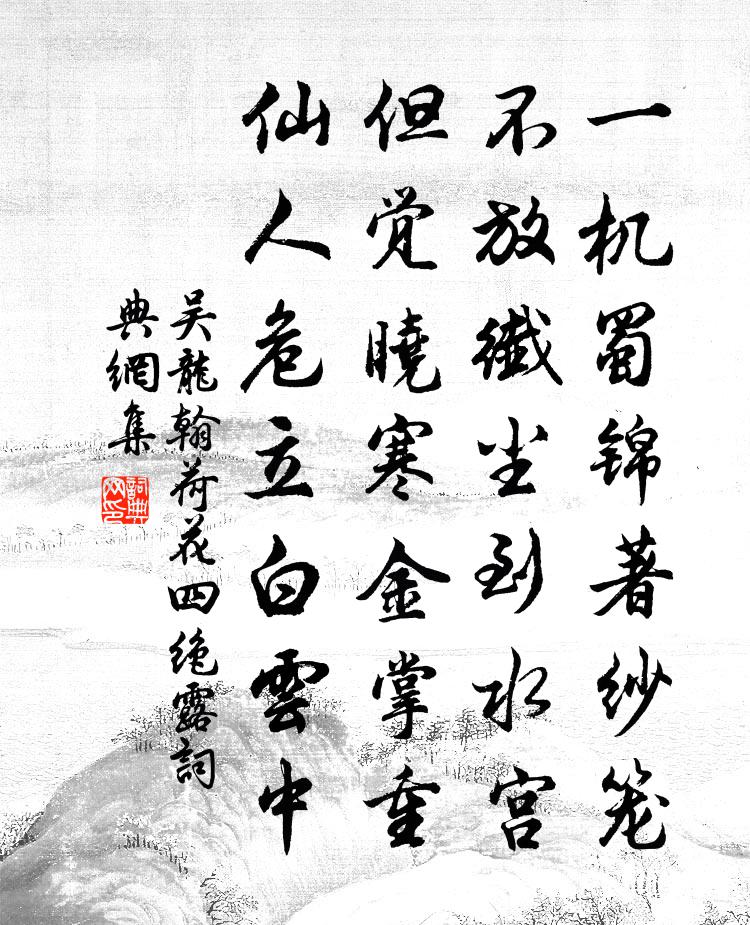 一机蜀锦著纱笼
不放纎尘到水宫
但觉曉寒金掌重
仙人危立白雲中
吴龍翰荷花四绝露詞
典網集
詞典
网印